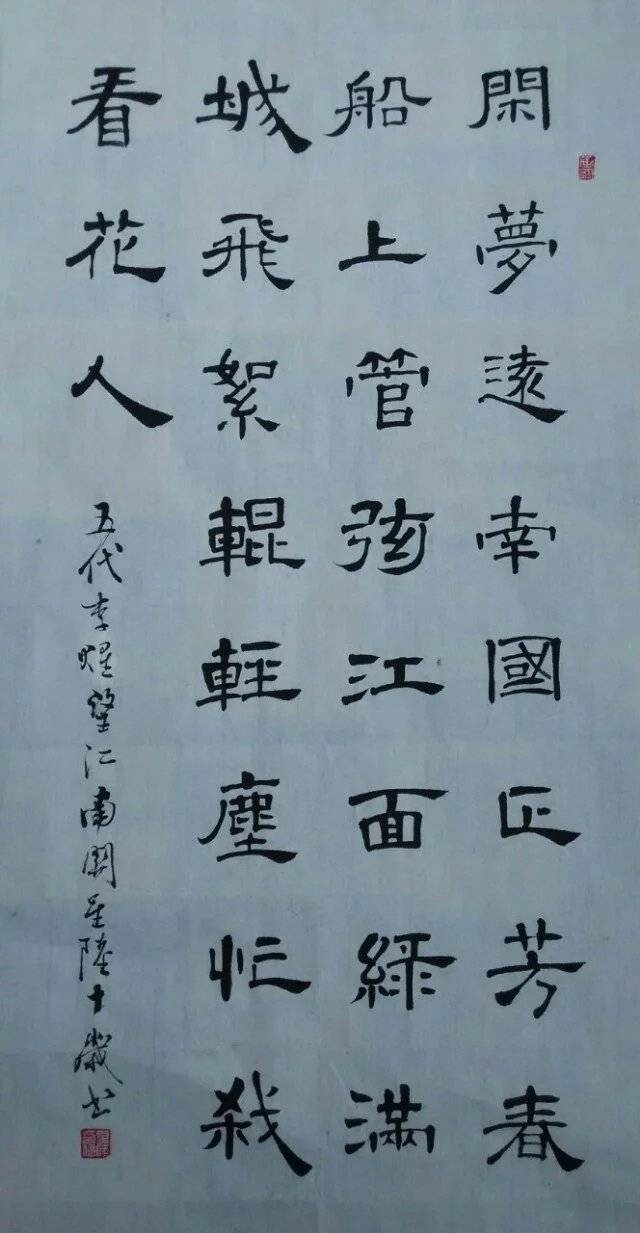 閑夢遠南國正芳春
船上管弦江面綠滿
城飛絮輥輕塵忙殺
看花人
五代李煜望江南關星陸十歲書